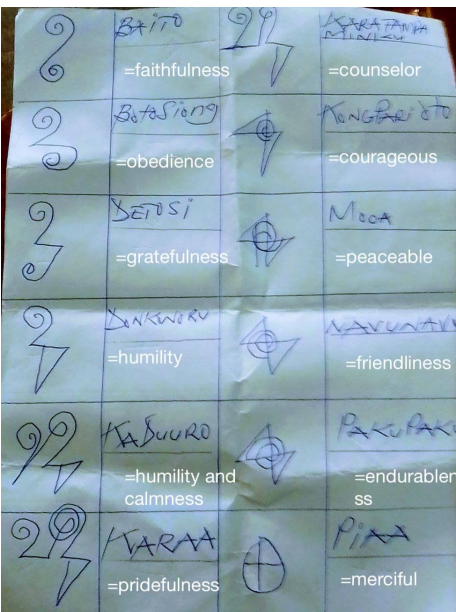 BAITO
=faithfulness
KARATANYA
MINIKU
=counselor
BOTOSIONG
=obedience
KONGPARIOTO
=courageous
DETOSI
=gratefulness
MOOA
=peaceable
DONKWORU
=humility
NAVUNAVU
=friendliness
KADUURO
=humility and
calmness
PAKUPAKU
=endurablen
ss
KARAA
=pridefulness
PIAA
=merciful